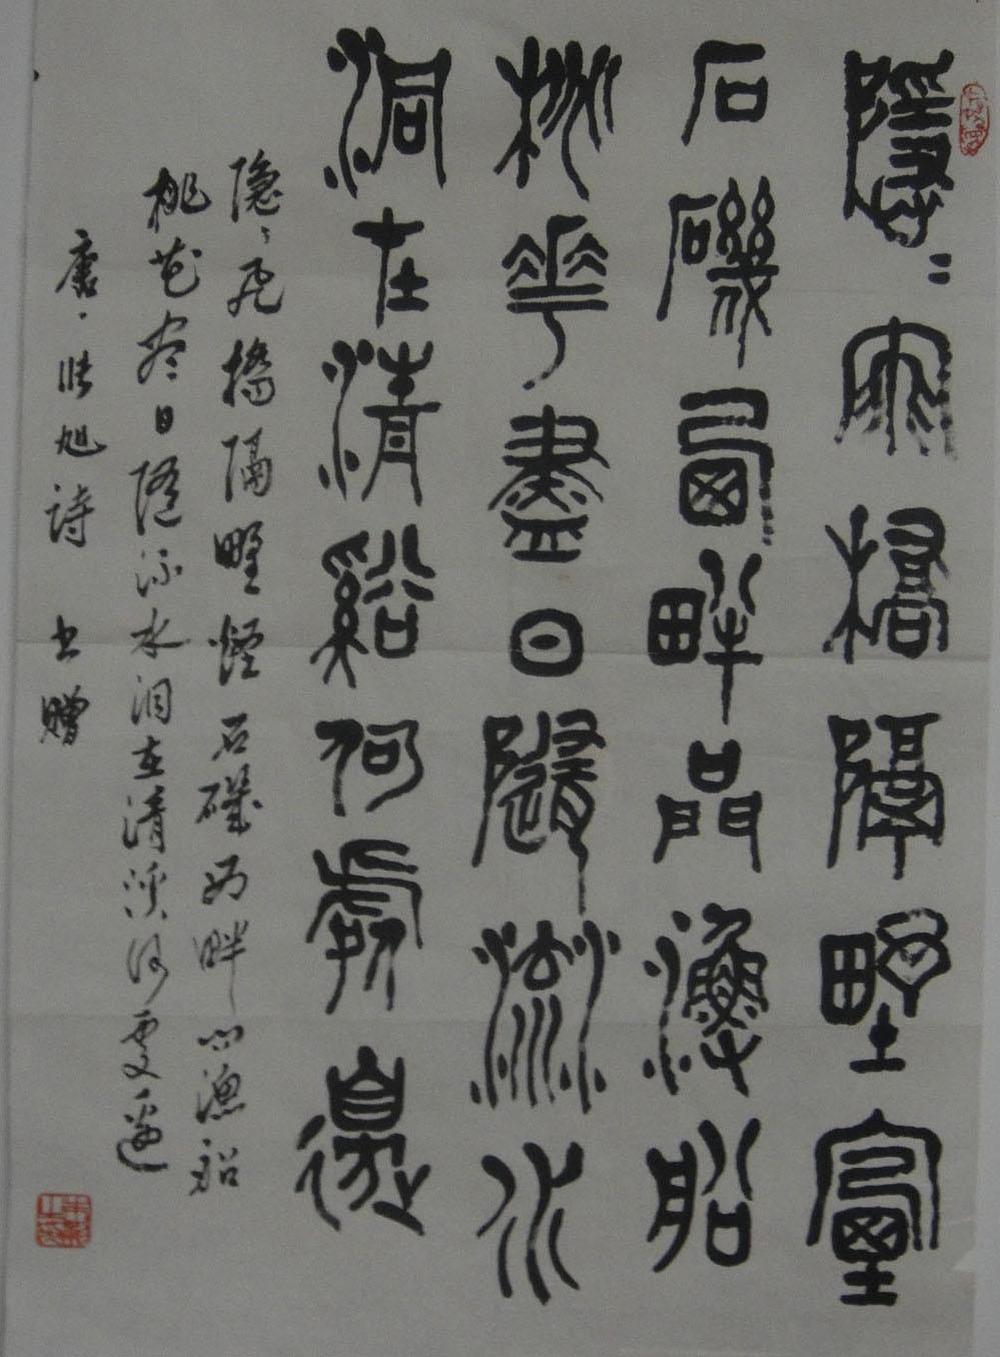 隱〻飛橋隔野煙
石磯西畔問漁船
桃華盡日隨流水
洞在清谿何處邊
隐〻飛橋隔野煙石磯西畔问漁船
桃花尽日随流水洞在清溪何處邊
唐·张旭詩 书贈